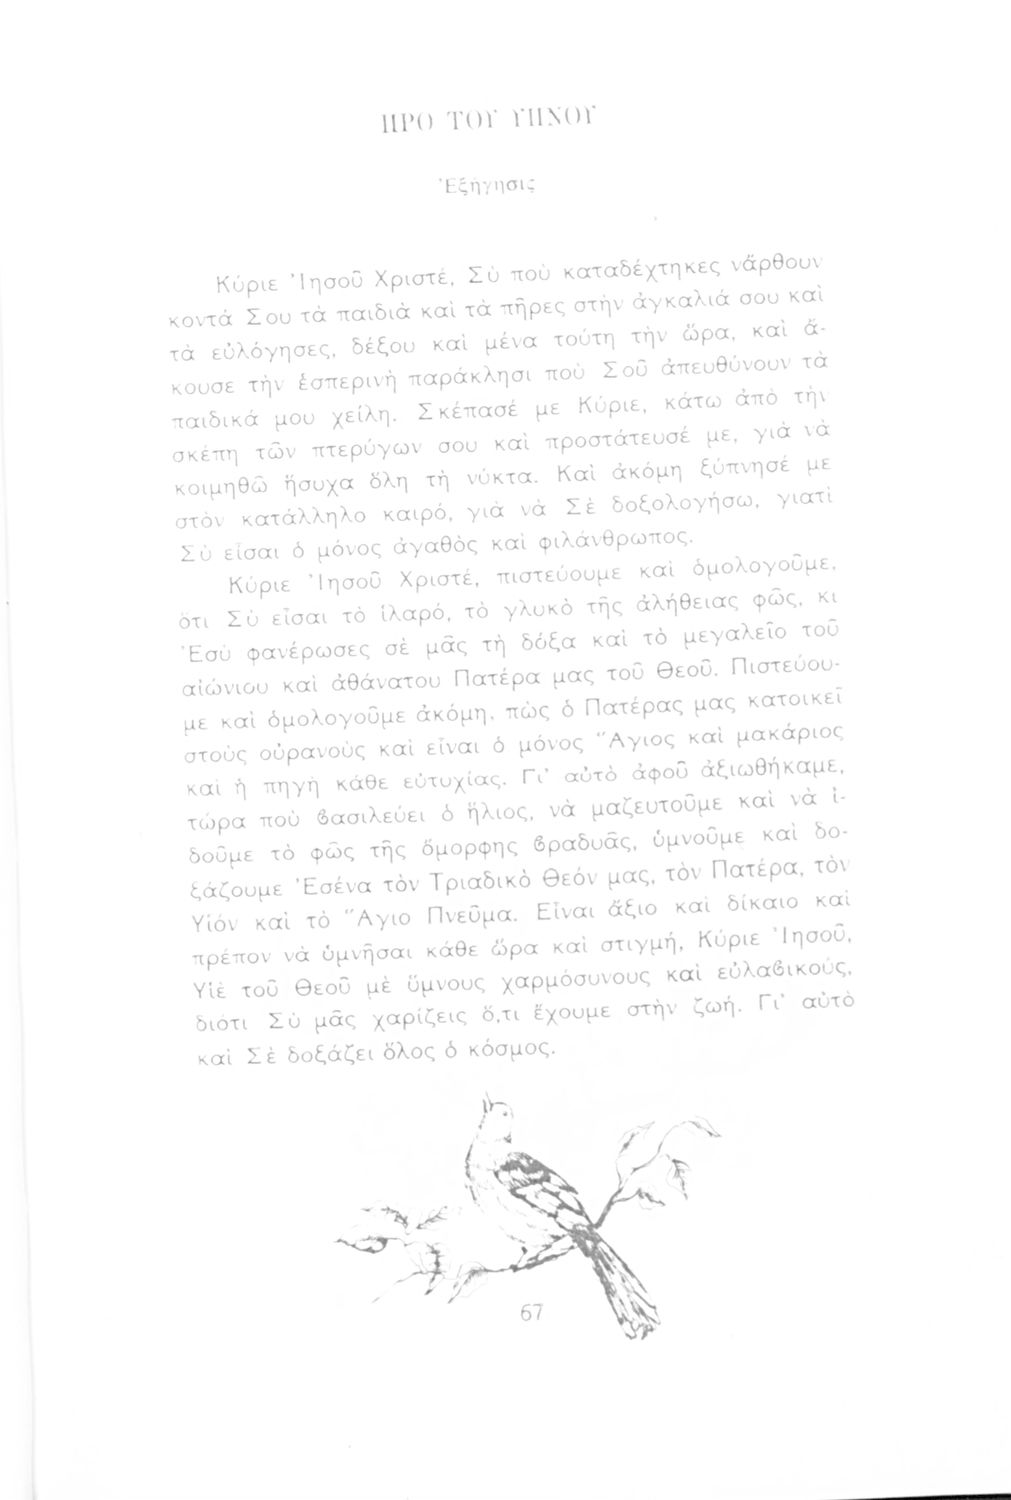 ΠΡΟ ΤΟΥ ΥΠΝΟΥ
Ἐξήγησις
Κύριε Ἰησοῦ Χριστέ, Σὺ ποὺ καταδέχτηκες νἄρθουν
κοντά Σου τὰ παιδιὰ καὶ τὰ πῆρες στὴν ἀγκαλιά σου καὶ
τὰ εὐλόγησες, δέξου καὶ μένα τούτη τὴν ὥρα, καὶ ἄ-
κουσε τὴν ἑσπερινὴ παράκλησι ποὺ Σοῦ ἀπευθύνουν τὰ
παιδικά μου χείλη. Σκέπασέ με Κύριε, κάτω ἀπὸ τὴν
σκέπη τῶν πτερύγων σου καὶ προστάτευσέ με, γιὰ νὰ
κοιμηθῶ ἥσυχα ὅλη τὴ νύκτα. Καὶ ἀκόμη ξύπνησέ με
στὸν κατάλληλο καιρό, γιὰ νὰ Σὲ δοξολογήσω, γιατὶ
Σὺ εἶσαι ὁ μόνος ἀγαθὸς καὶ φιλάνθρωπος.
Κύριε Ἰησοῦ Χριστέ, πιστεύουμε καὶ ὁμολογοῦμε,
ὅτι Σὺ εἶσαι τὸ ἱλαρό, τὸ γλυκὸ τῆς ἀλήθειας φῶς, κι
Ἐσὺ φανέρωσες σὲ μᾶς τὴ δόξα καὶ τὸ μεγαλεῖο τοῦ
αἰώνιου καὶ ἀθάνατου Πατέρα μας τοῦ Θεοῦ. Πιστεύου-
με καὶ ὁμολογοῦμε ἀκόμη, πὼς ὁ Πατέρας μας κατοικεῖ
στοὺς οὐρανοὺς καὶ εἶναι ὁ μόνος Ἅγιος καὶ μακάριος
καὶ ἡ πηγὴ κάθε εὐτυχίας. Γι' αὐτὸ ἀφοῦ ἀξιωθήκαμε,
τώρα ποὺ βασιλεύει ὁ ἥλιος, νὰ μαζευτοῦμε καὶ νὰ ἰ-
δοῦμε τὸ φῶς τῆς ὄμορφης βραδυᾶς, ὑμνοῦμε καὶ δο-
ξάζουμε Ἐσένα τὸν Τριαδικὸ Θεόν μας, τὸν Πατέρα, τὸν
Υἱόν καὶ τὸ Ἅγιο Πνεῦμα. Εἶναι ἄξιο καὶ δίκαιο καὶ
πρέπον νὰ ὑμνῆσαι κάθε ὥρα καὶ στιγμή, Κύριε Ἰησοῦ,
Υἱὲ τοῦ Θεοῦ μὲ ὕμνους χαρμόσυνους καὶ εὐλαβικούς,
διότι Σὺ μᾶς χαρίζεις ὅ,τι ἔχουμε στὴν ζωή. Γι' αὐτὸ
καὶ Σὲ δοξάζει ὅλος ὁ κόσμος.
67